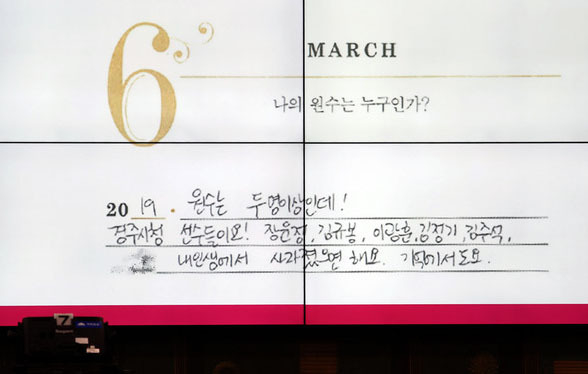 6
MARCH
나의 원수는 누구인가?
2019. 원수는 두명이상인데!
경주시청 선수들이요! 장윤정, 김규봉, 이광훈, 김정기, 김주석,
내인생에서 사라졌으면 해요. 기억에서도요.
7